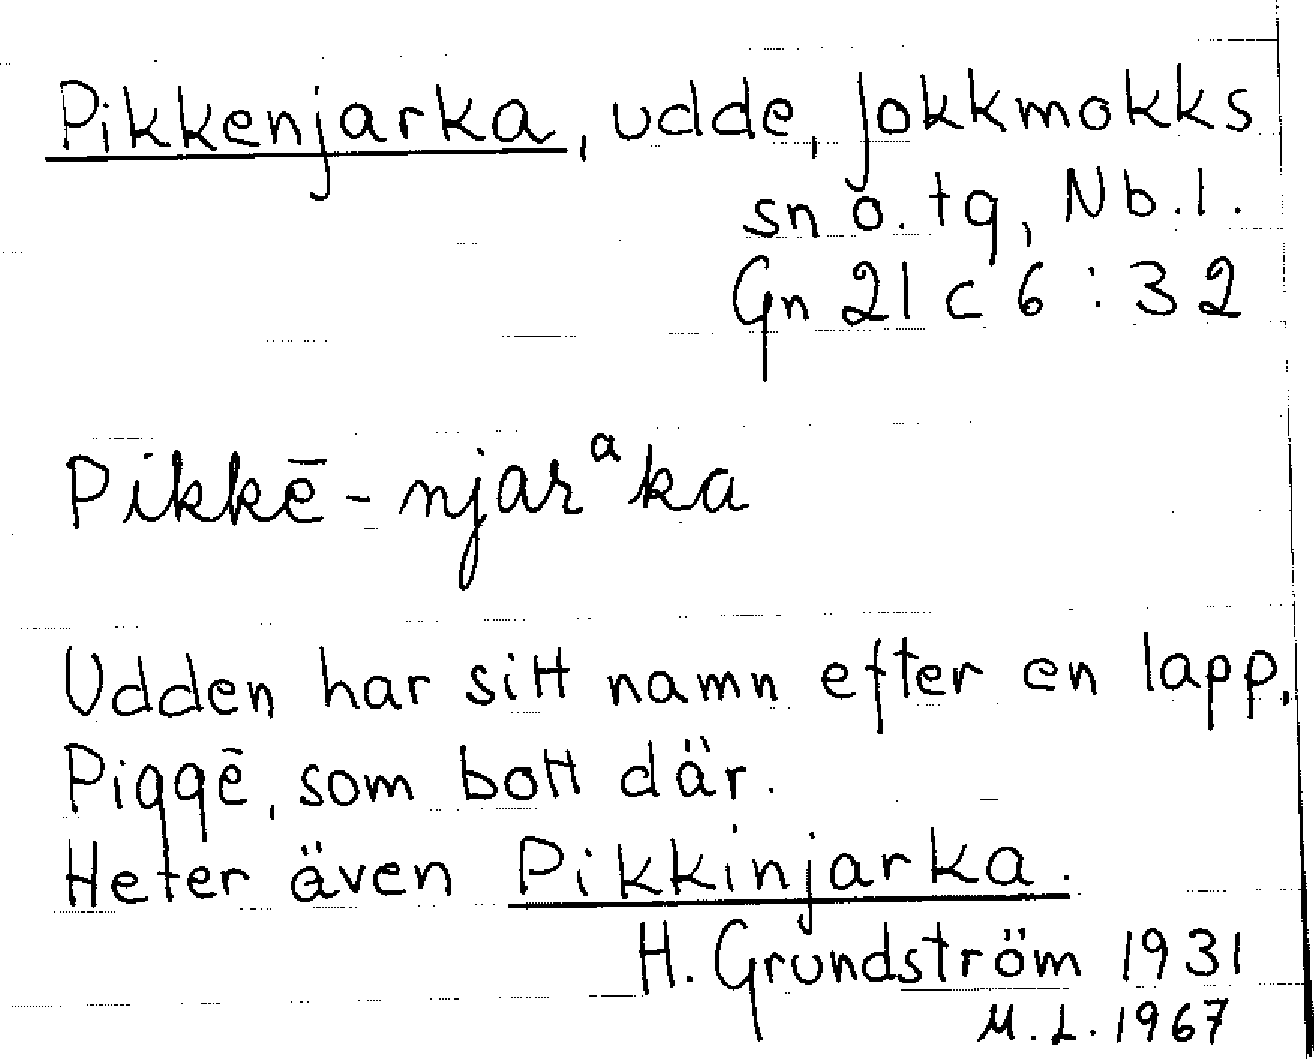 Pikkenjarka, udde, Jokkmokks
sn o. tg, Nb.l.
Gn 21 c 6 : 32
Pikkē-njarᵃka
Udden har sitt namn efter en lapp,
Piggē, som bott där.
Heter även Pikkinjarka.
H. Grundström 1931
M.L. 1967